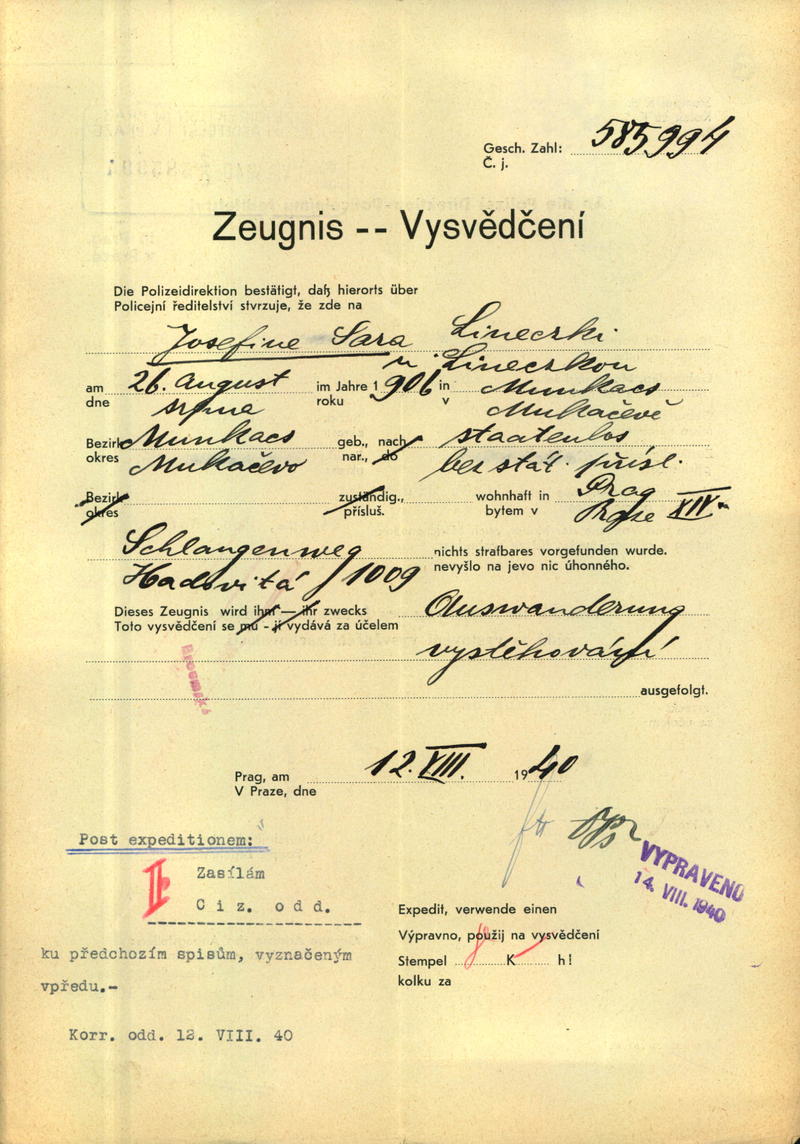 Gesch. Zahl: 585994
Č. j.
Zeugnis -- Vysvědčení
Die Polizeidirektion bestätigt, daß hierorts über
Policejní ředitelství stvrzuje, že zde na
Josefine Sara Lineczki
u Lineczkou
am 26. August im Jahre 1906 in Munkacs
dne srpna roku v Mukačevě
Bezirk Munkacs geb., nach staatenlos
okres Mukačevo nar., do bez stát. přísl.
Bezirk zuständig., wohnhaft in Prag
okres přísluš. bytem v Praze XIV.
Schlangenweg nichts strafbares vorgefunden wurde.
Hadovitá / 1009 nevyšlo na jevo nic úhonného.
Dieses Zeugnis wird ihm — ihr zwecks Auswanderung
Toto vysvědčení se mu - jí vydává za účelem
vystěhování
ausgefolgt.
Prag, am 12. VIII. 1940
V Praze, dne
Post expeditionem:
VYPRAVENO
14. VIII. 1940
II
Zasílám
Ciz. odd.
Expedit, verwende einen
Výpravno, použij na vysvědčení
Stempel K h!
kolku za
ku předchozím spisům, vyznačeným
vpředu.-
Korr. odd. 12. VIII. 40